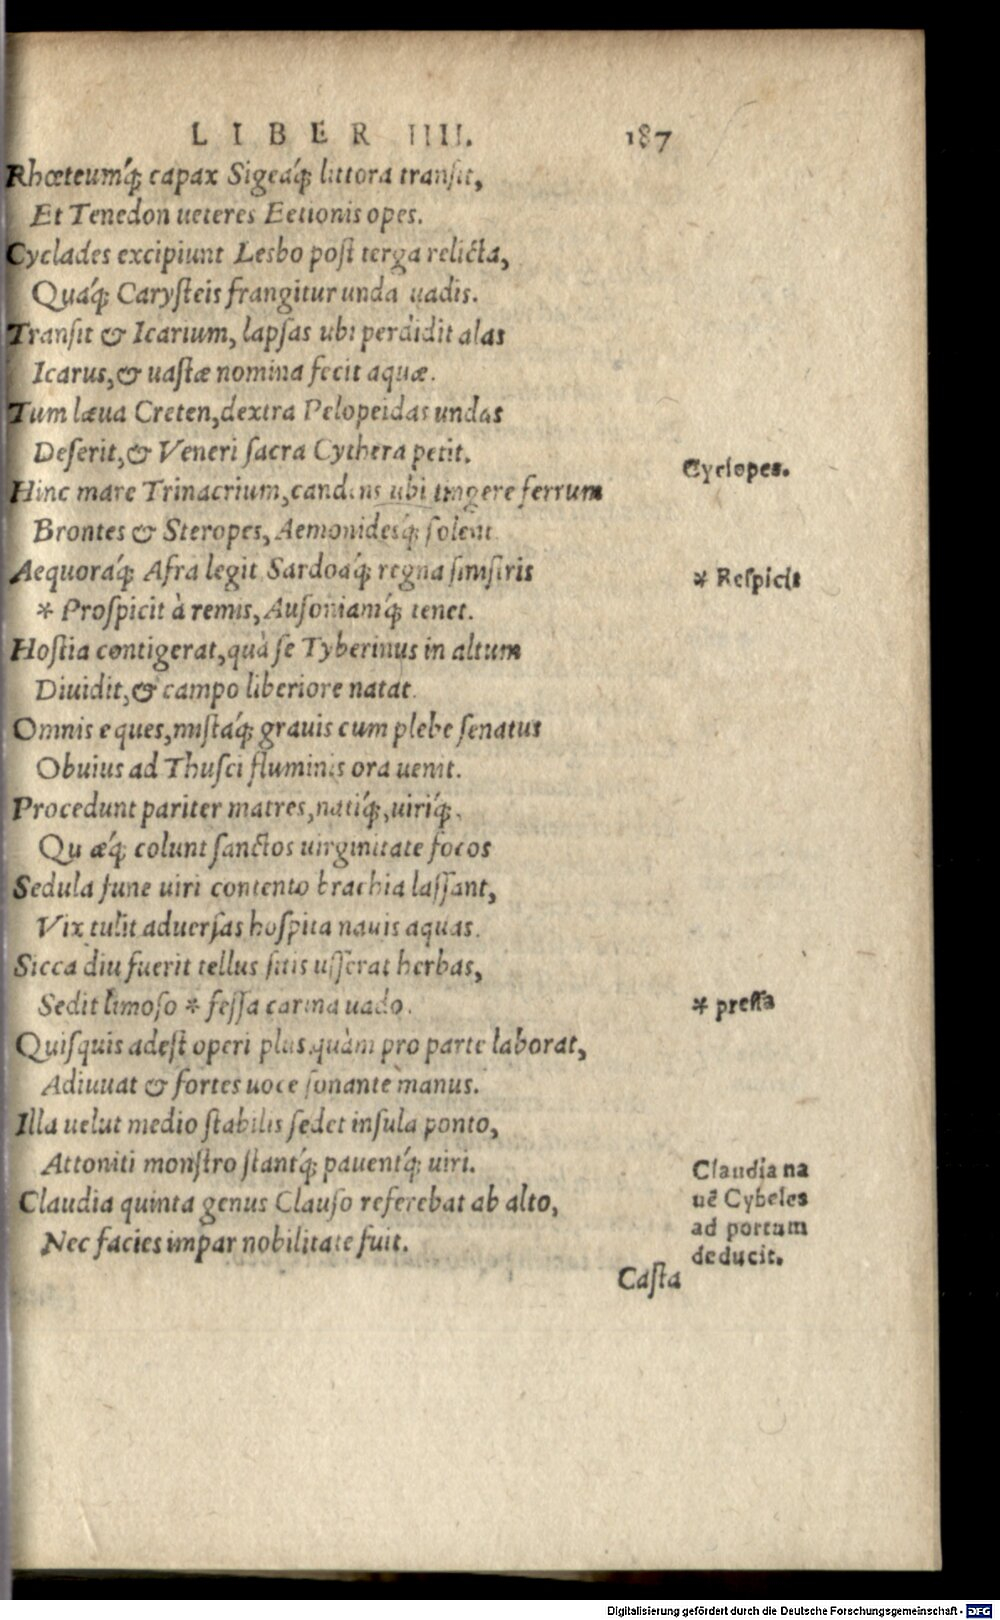 LIBER IIII. 187
Rhœteumq́; capax Sigeáq; littora transit,
Et Tenedon ueteres Eetionis opes.
Cyclades excipiunt Lesbo post terga relicta,
Quáq; Carysteis frangitur unda uadis.
Transit & Icarium, lapsas ubi perdidit alas
Icarus, & uastæ nomina fecit aquæ.
Tum læua Creten, dextra Pelopeidas undas
Deserit, & Veneri sacra Cythera petit.
Cyclopes.
Hinc mare Trinacrium, candens ubi tingere ferrum
Brontes & Steropes, Aemonidesq́; solent
Aequoráq; Afra legit Sardoáq; regna sinistris
* Respicit
* Prospicit à remis, Ausoniamq́; tenet.
Hostia contigerat, quà se Tyberinus in altum
Diuidit, & campo liberiore natat.
Omnis eques, mistáq; grauis cum plebe senatus
Obuius ad Thusci fluminis ora uenit.
Procedunt pariter matres, natíq;, uiríq;.
Quæq́; colunt sanctos uirginitate focos
Sedula fune uiri contento brachia lassant,
Vix tulit aduersas hospita nauis aquas.
Sicca diu fuerit tellus sitis usserat herbas,
Sedit limoso * fessa carina uado.
* pressa
Quisquis adest operi plus quàm pro parte laborat,
Adiuuat & fortes uoce sonante manus.
Illa uelut medio stabilis sedet insula ponto,
Attoniti monstro stantq́; pauentq́; uiri.
Claudia quinta genus Clauso referebat ab alto,
Nec facies impar nobilitate fuit.
Claudia na
uē Cybeles
ad portum
deducit.
Casta
Digitalisierung gefördert durch die Deutsche Forschungsgemeinschaft - DFG